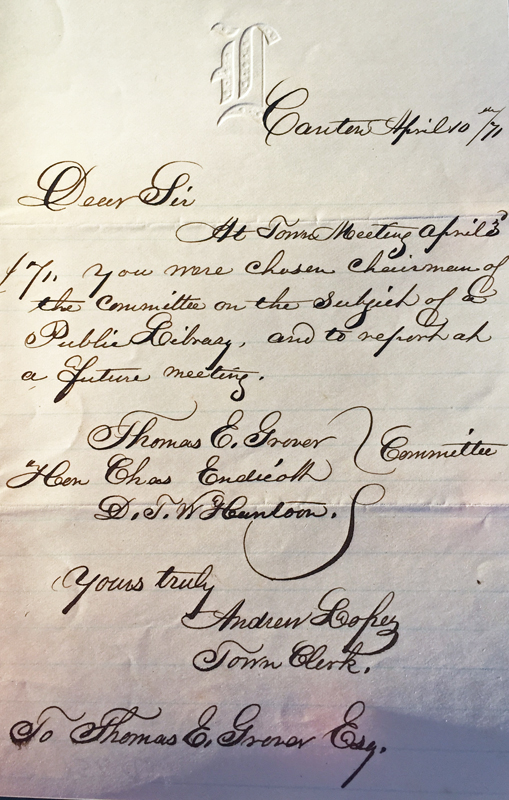 L
Canton April 10th/71
Dear Sir
At Town Meeting April 3d
/71, you were chosen chairman of
the committee on the subject of a
Public Library, and to report at
a future meeting.
Thomas E. Grover
Committee
Hon Chas Endicott
D. T. V Huntoon.
Yours truly
Andrew Lopez
Town Clerk.
To Thomas E. Grover Esq.